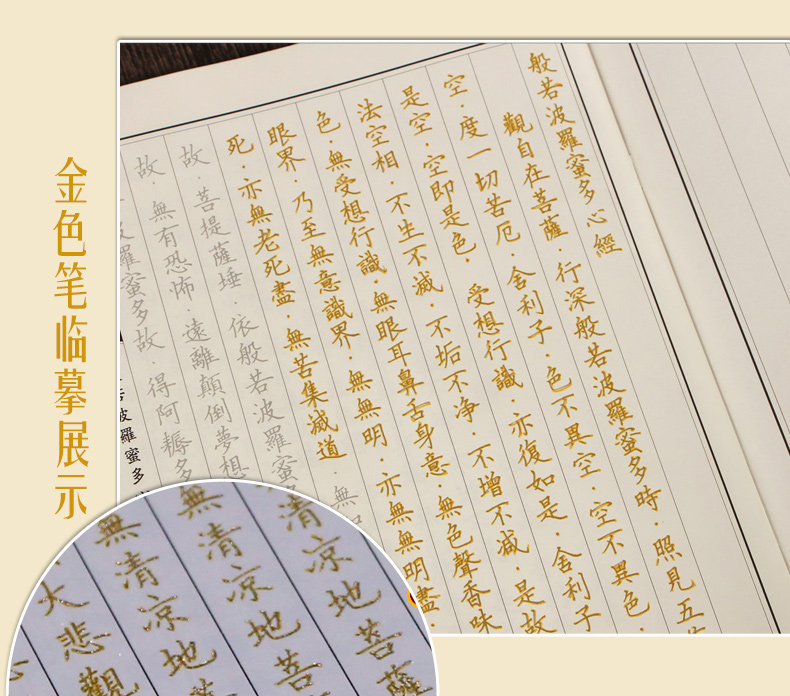 金色笔临摹展示
般若波羅蜜多心經
觀自在菩薩·行深般若波羅蜜多時·照見五
空·度一切苦厄·舍利子·色不異空·空不異色·
是空·空即是色·受想行識·亦復如是·舍利子
法空相·不生不滅·不垢不净·不增不减·是故
色·無受想行識·無眼耳鼻舌身意·無色聲香味
眼界·乃至無意識界·無無明·亦無無明盡·
死·亦無老死盡·無苦集滅道·無
故·菩提薩埵·依般若波羅蜜
故 無有恐怖·遠離顛倒夢想
波羅蜜多故·得阿耨多
波羅蜜多
無清凉地菩薩
無清凉地菩
無清凉地
大悲觀